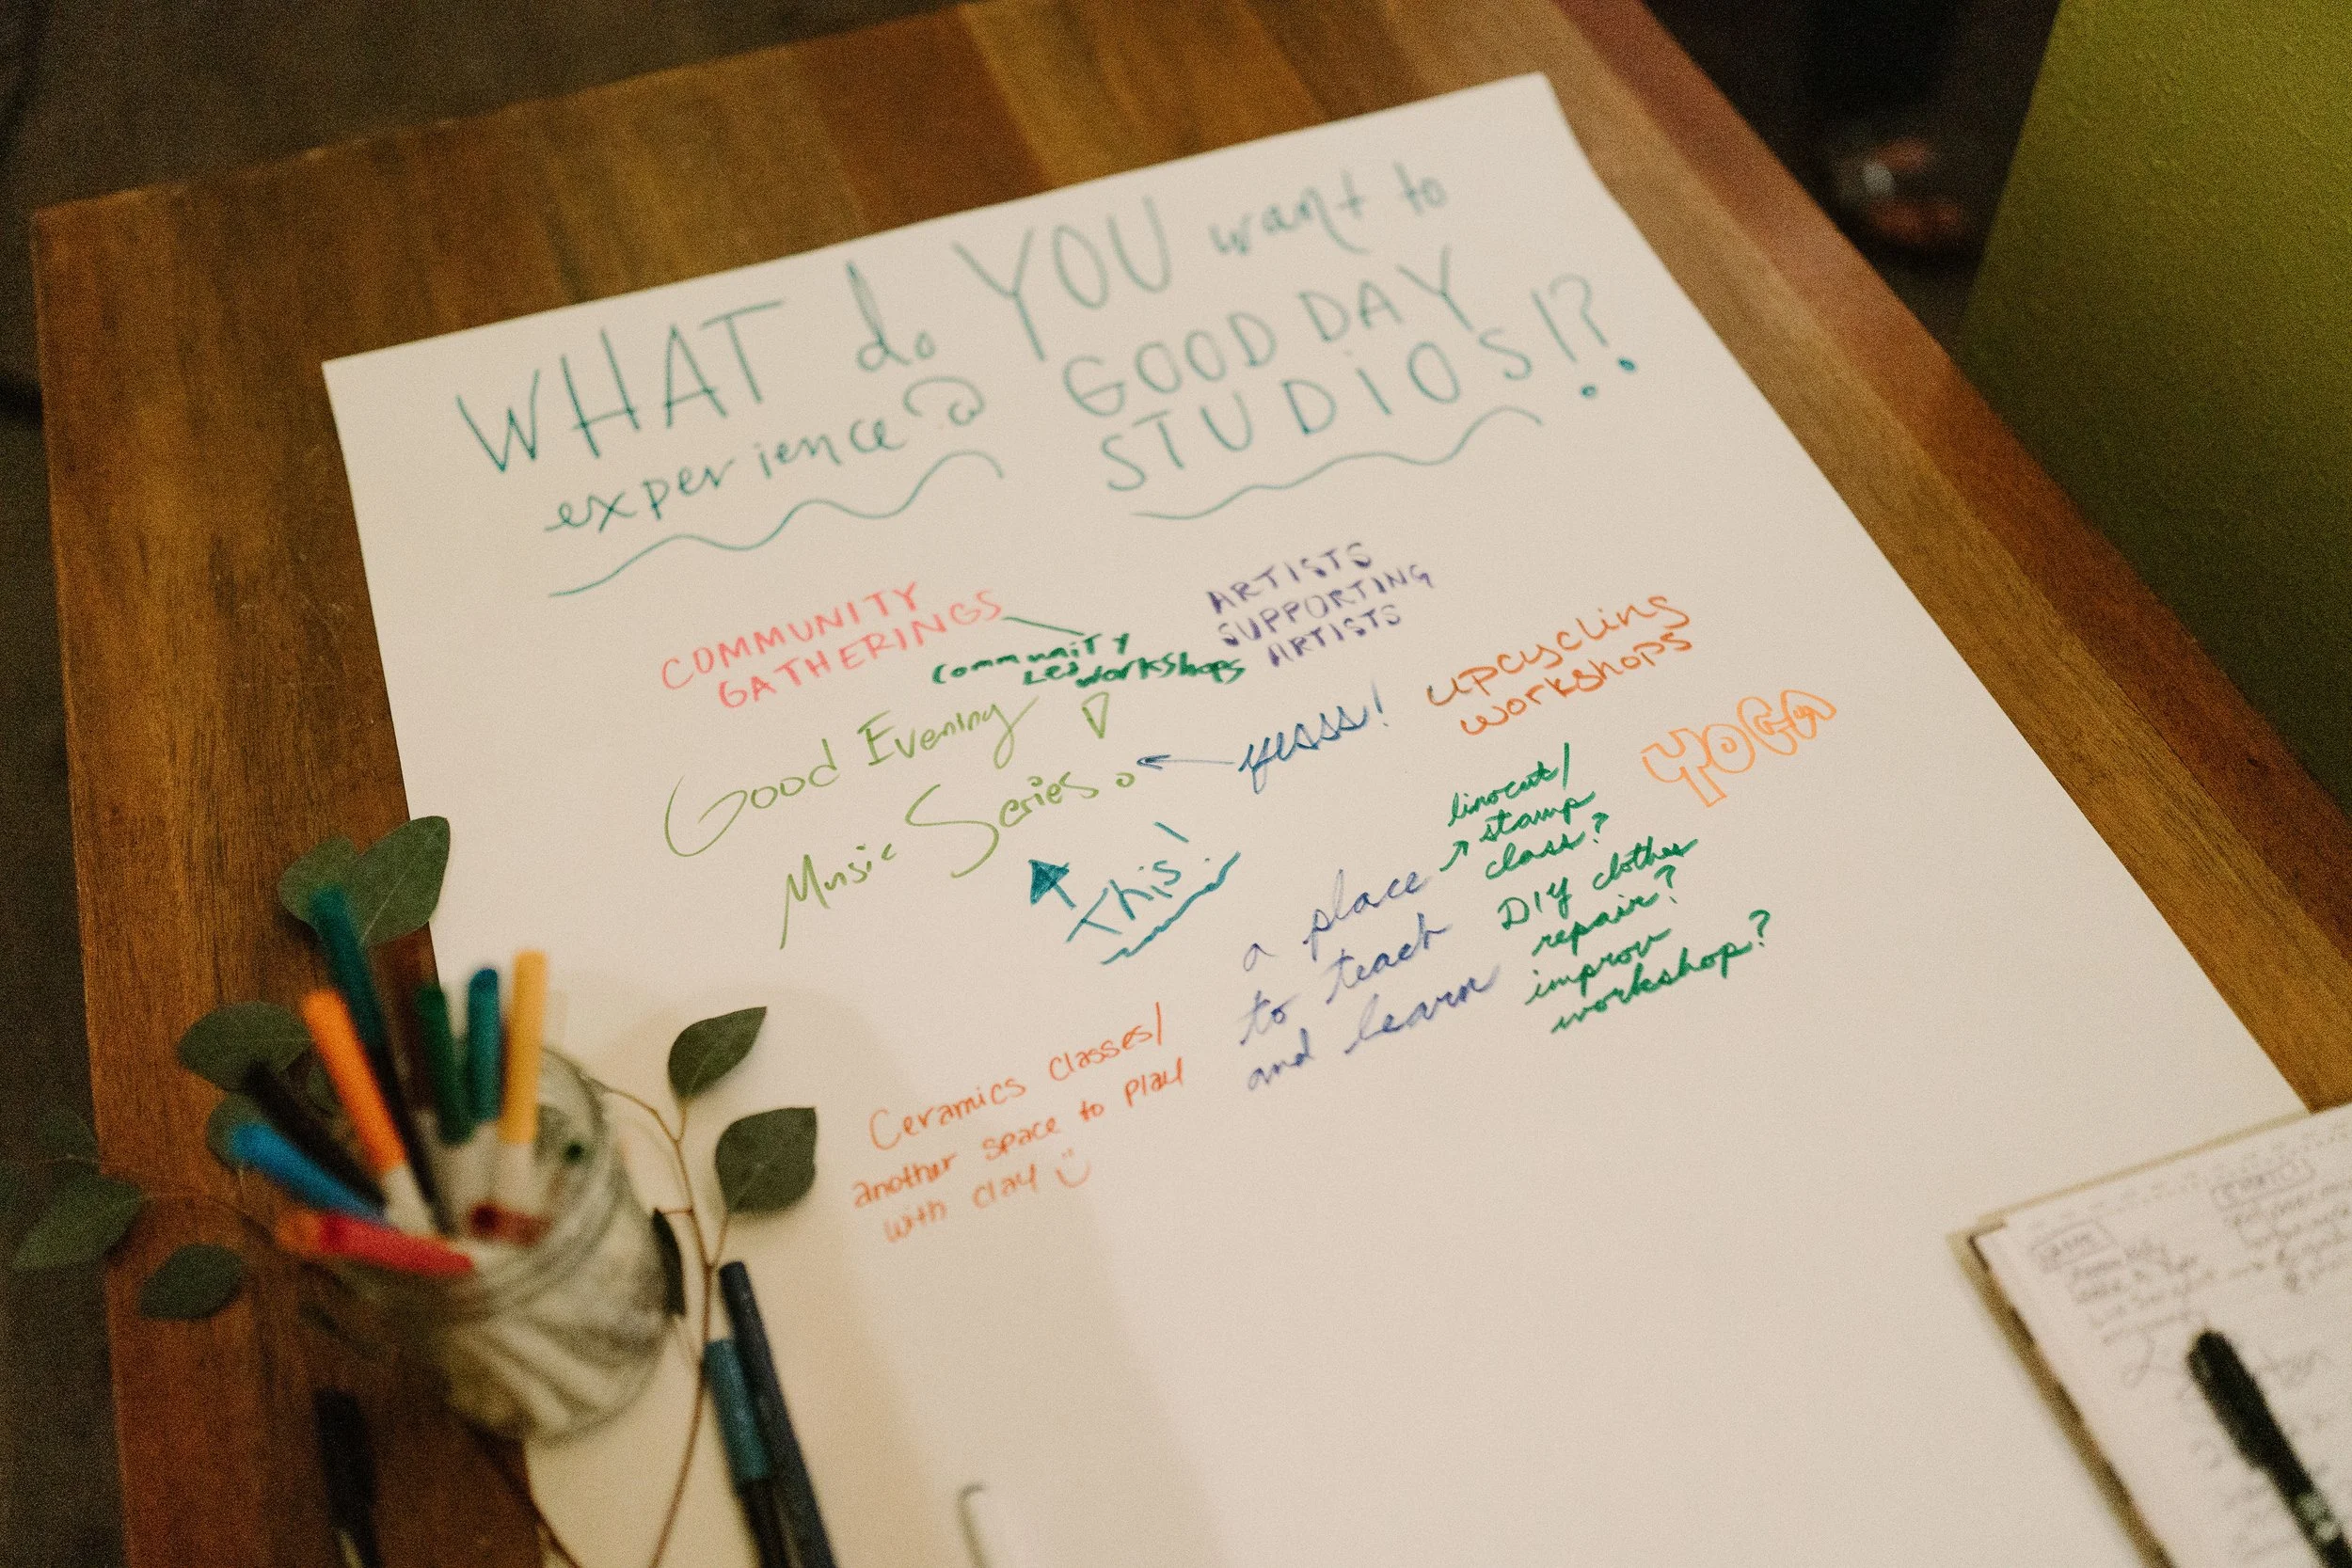 WHAT do YOU want to
experience @ GOOD DAY
STUDIOS!?
COMMUNITY
GATHERINGS
community
Led workshops
ARTISTS
SUPPORTING
ARTISTS
upcycling
workshops
YOGA
Good Evening
Music Series!
yesss!
This!
linocut/
stamp
class?
DIY clothes
repair?
improv
workshop?
a place
to teach
and learn
Ceramics classes/
another space to play
with clay